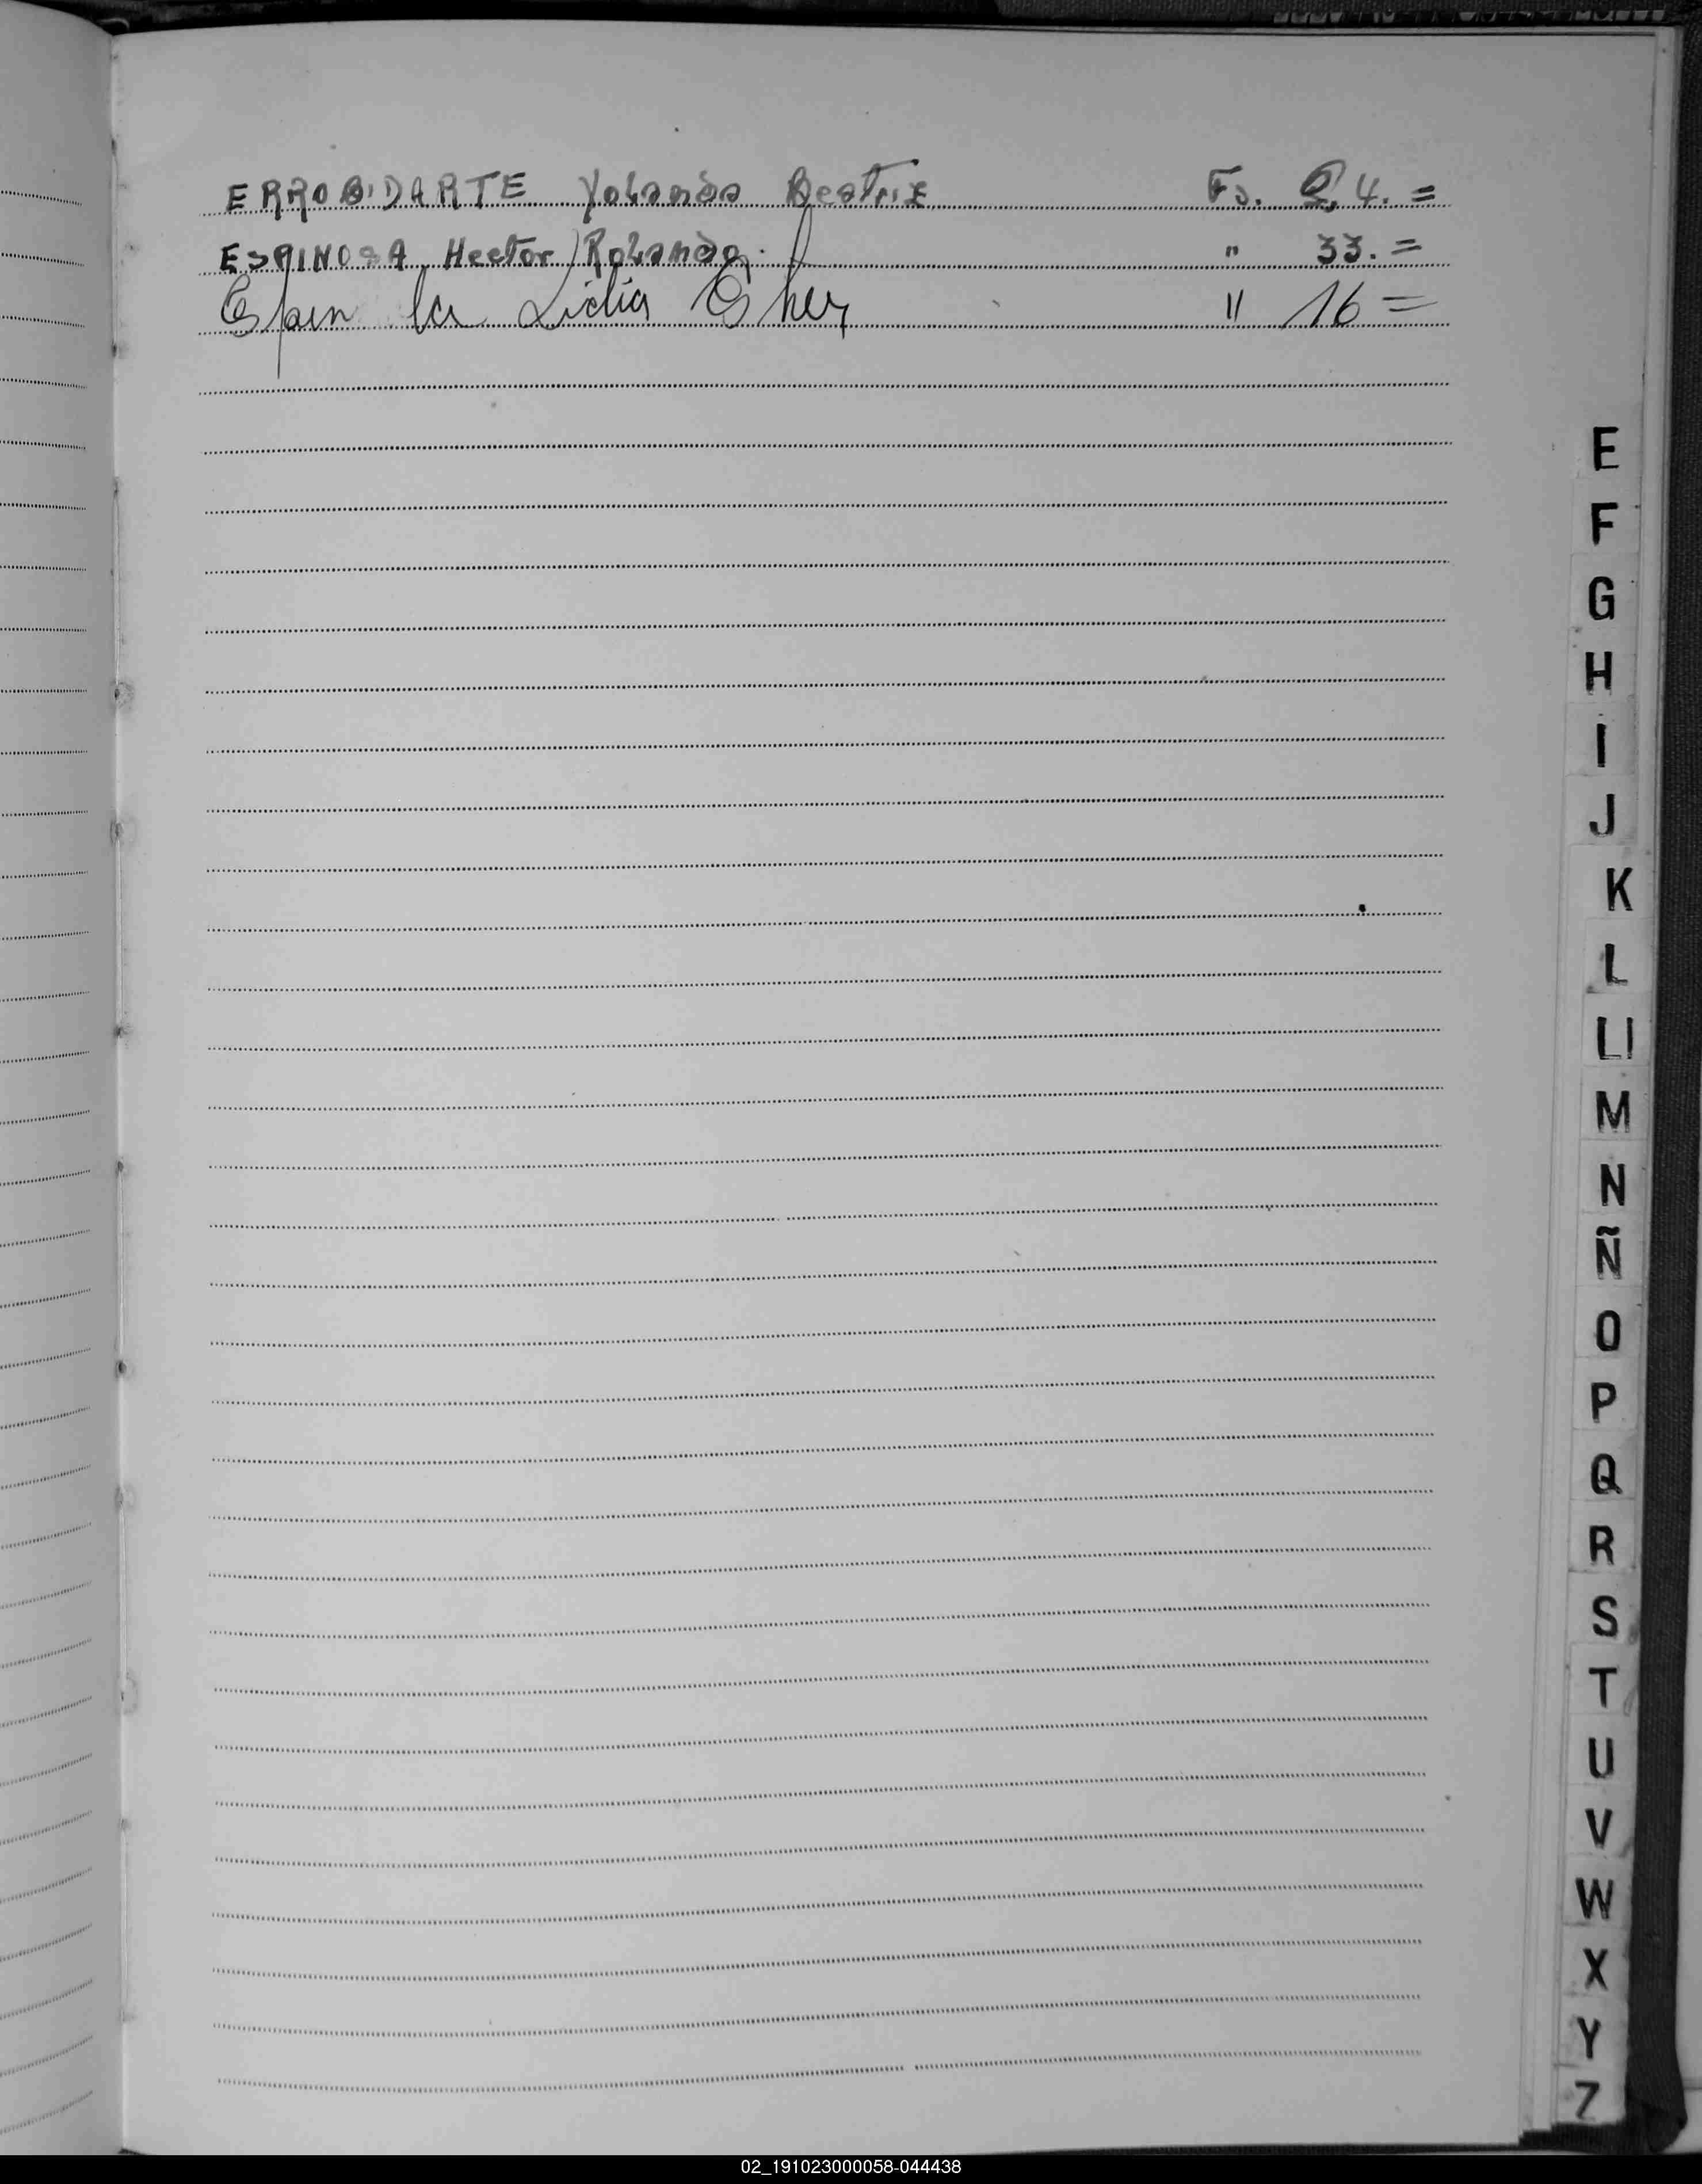 ERROBIDARTE Yolanda Beatriz Fs. 2, 4. =
ESPINOSA Hector Rolando. " 33. =
Lidia " 16 =
E
F
G
H
I
J
K
L
Ll
M
N
Ñ
O
P
Q
R
S
T
U
V
W
X
Y
Z
02_191023000058-044438